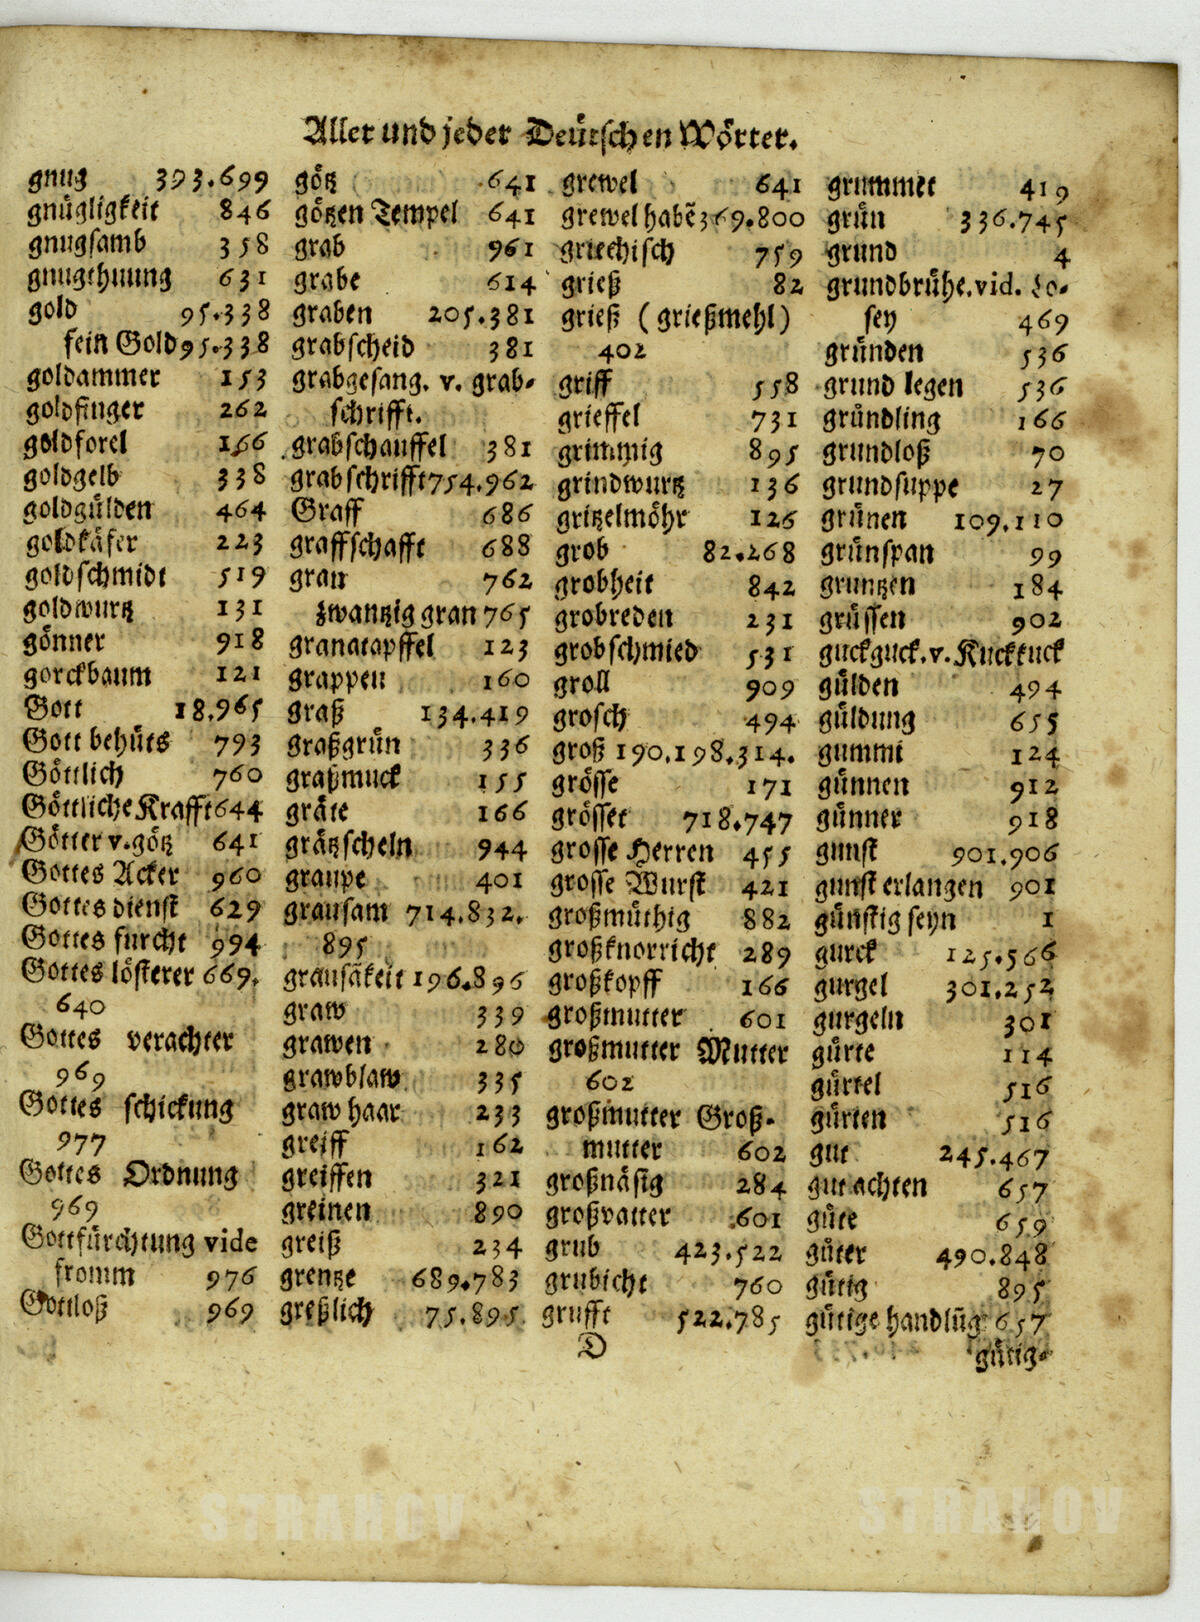 Aller und jeder Deütschen Wörter.
gnug 393.699
gnügligkeit 846
gnugsamb 358
gnugthuung 631
gold 95.338
fein Gold 95.338
goldammer 153
goldfinger 262
goldforel 166
goldgelb 338
goldgülden 464
goldkäfer 223
goldschmidt 519
goldwurtz 131
gönner 918
gorckbaum 121
Gott 18.965
Gott behüts 793
Göttlich 760
Göttliche Krafft 644
Götter v. götz 641
Gottes Acker 960
Gottes dienst 629
Gottes furcht 994
Gottes lösterer 669.
640
Gottes verachter
969
Gottes schickung
977
Gottes Ordnung
969
Gottfürchtung vide
fromm 976
Gottloß 969
götz 641
götzen Tempel 641
grab 961
grabe 614
graben 205.381
grabscheid 381
grabgesang. v. grab-
schrifft.
grabschauffel 381
grabschrifft 754.962
Graff 686
graffschafft 688
gran 762
zwantzig gran 765
granatapffel 123
grappen 160
graß 134.419
graßgrün 336
graßmuck 155
gräte 166
grätzscheln 944
graupe 401
grausam 714.832.
895
grausãkeit 196.896
graw 339
grawen 280
grawblaw 335
graw haar 233
greiff 162
greiffen 321
greinen 890
greiß 234
grentze 689.783
greßlich 75.895
grewel 641
grewel habẽ 369.800
griechisch 759
grieß 82
grieß (grießmehl)
402
griff 558
grieffel 731
grimmig 895
grindwurtz 136
gritzelmöhr 126
grob 82.268
grobheit 842
grobreden 231
grobschmied 531
groll 909
grosch 494
groß 190.198.314.
grösse 171
grösser 718.747
grosse Herren 455
grosse Wurst 421
großmüthig 882
großknorricht 289
großkopff 166
großmutter 601
großmutter Mutter
602
großmutter Groß-
mutter 602
großnäsig 284
großvatter 601
grub 423.522
grubicht 760
grufft 522.785
grummet 419
grün 336.745
grund 4
grundbrühe. vid. So-
sey 469
gründen 536
grund legen 536
gründling 166
grundloß 70
grundsuppe 27
grünen 109.110
grünspan 99
gruntzen 184
grüssen 902
guckguck. v. Kuckkuck
gülden 494
güldung 655
gummi 124
günnen 912
günner 918
gunst 901.906
gunst erlangen 901
günstig seyn 1
gurck 125.566
gurgel 301.252
gurgeln 301
gürte 114
gürtel 516
gürten 516
gut 245.467
gut achten 657
güte 659
güter 490.848
gütig 895
gütige handlũg 657
D
gütig-
STRAHOV
STRAHOV